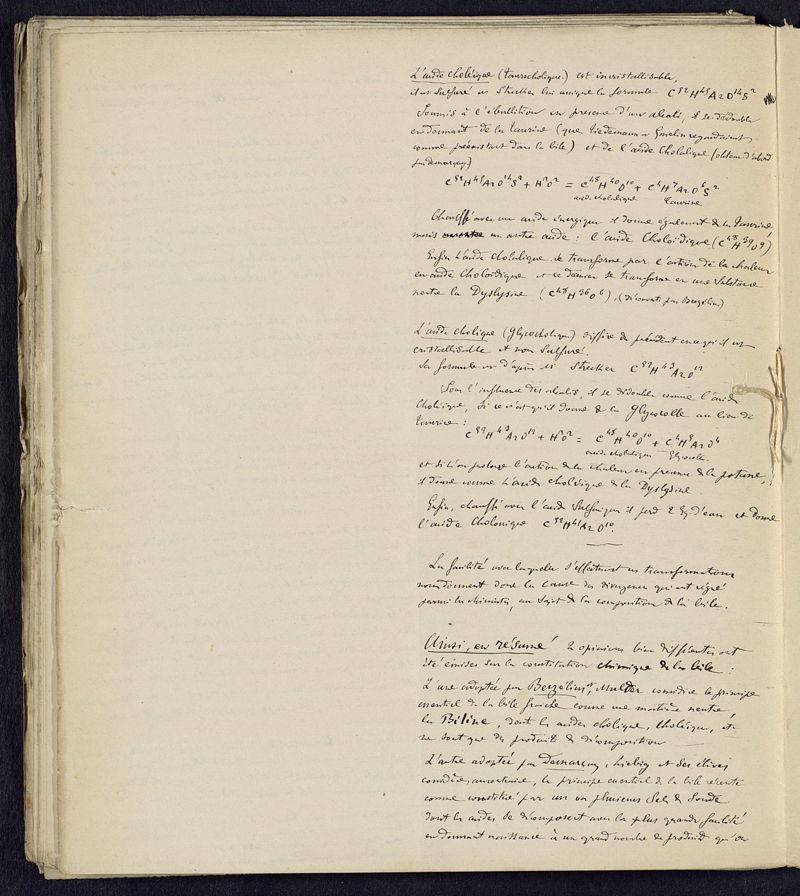 L'acide choléique (taurocholique) est incristallisable,
il est sulfuré et Strecker lui assigne la formule C⁵²H⁴⁵AzO¹⁴S²
Soumis à l'ébullition en présence d'un alcali, il se dédouble
en donnant de la taurine (que Tiedemann et Gmelin regardaient
comme préexistant dans la bile) et de l'acide cholalique (obtenu d'abord
par Demarçay)
C⁵²H⁴⁵AzO¹⁴S² + H²O² = C⁴⁸H⁴⁰O¹⁰ + C⁴H⁷AzO⁶S²
acide cholalique Taurine
Chauffé avec un acide énergique il donne également de la Taurine
mais un autre acide : l'acide Choloïdique (C⁴⁸H³⁹O⁹)
Enfin l'acide cholalique se transforme par l'action de la chaleur
en acide choloïdique et ce dernier se transforme en une substance
neutre la Dyslysine (C⁴⁸H³⁶O⁶), (découverte par Berzélius)
L'acide cholique (Glycocholique) diffère du précédent en ce qu'il est
cristallisable et non sulfuré.
Sa formule est d'après Strecker C⁵²H⁴³AzO¹²
Sous l'influence des alcalis, il se dédouble comme l'acide
Choléique, si ce n'est qu'il donne de la Glycocolle au lieu de
taurine :
C⁵²H⁴³AzO¹² + H²O² = C⁴⁸H⁴⁰O¹⁰ + C⁴H⁵AzO⁴
acide cholalique Glycocolle
et si l'on prolonge l'action de la chaleur en présence de la potasse,
il donne comme l'acide choléique de la Dyslysine.
Enfin, chauffé avec l'acide sulfurique il perd 2 Eq d'eau et donne
l'acide Cholonique C⁵²H⁴¹AzO¹⁰.
La facilité avec laquelle s'effectuent ces transformations
nous donnent donc la cause des divergences qui ont régné
parmi les chimistes, au sujet de la composition de la bile.
Ainsi, en résumé 2 opinions bien différentes ont
été émises sur la constitution chimique de la bile :
L'une adoptée par Berzélius et Mulder considère le principe
essentiel de la bile fraîche comme une matière neutre,
la Biline, dont les acides cholique, choléique, etc
ne sont que des produits de décomposition
L'autre adoptée par Demarçay, Liebig et ses élèves
considère, au contraire, le principe essentiel de la bile récente
comme constitué par un ou plusieurs Sels de Soude
dont les acides se décomposent avec la plus grande facilité
en donnant naissance à un grand nombre de produits qu'on